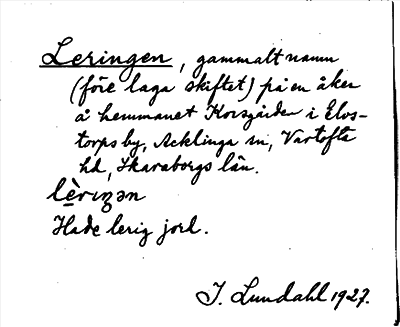 Leringen, gammalt namn
(före laga skiftet) på en åker
å hemmanet Korsgården i Elos-
torps by, Acklinga sn, Vartofta
hd, Skaraborgs län.
lèriŋən
Hade lerig jord.
I. Lundahl 1927.